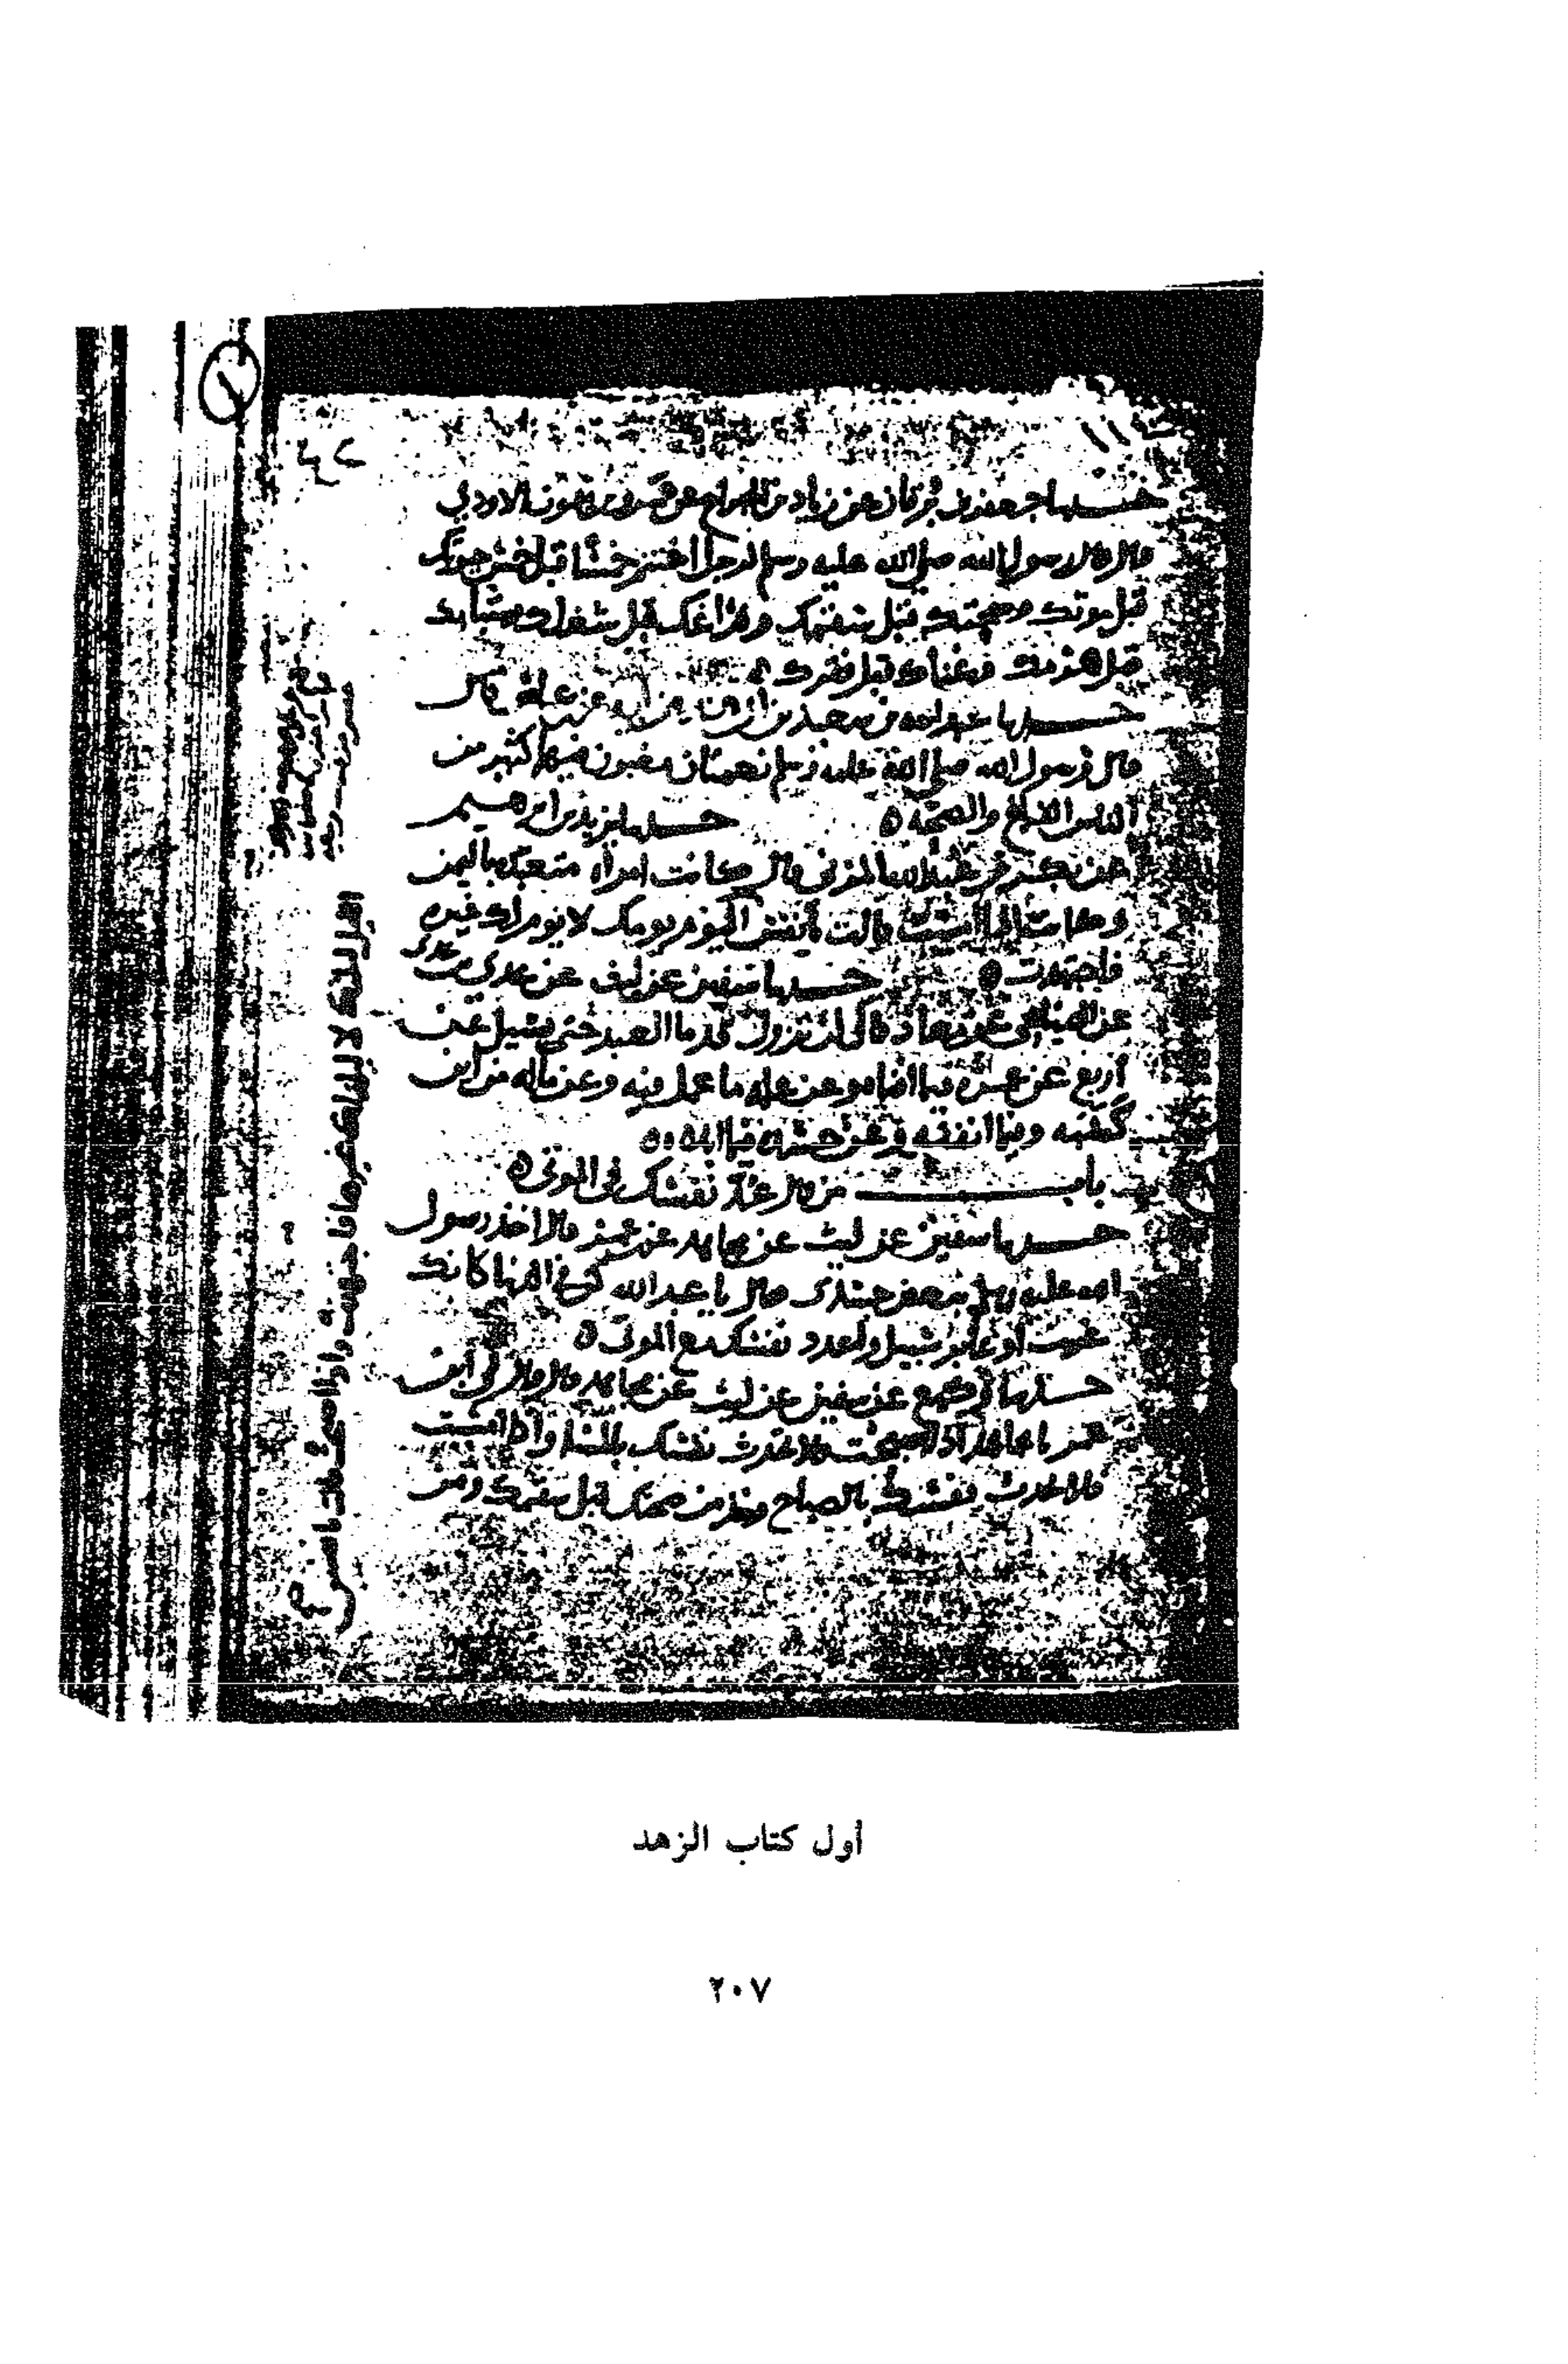 حدثنا جعفر بن برقان عن زياد بن الجراح عن عمرو بن ميمون الاودي
قال قال رسول الله صلى الله عليه وسلم لرجل اغتنم خمسا قبل خمس حيوتك
قبل موتك وصحتك قبل سقمك وفراغك قبل شغلك وشبابك
قبل هرمك وغناك قبل فقرك
حدثنا عبد الله بن سعيد بن أبي هند عن أبيه عن قال
قال رسول الله صلى الله عليه وسلم نعمتان مغبون فيهما كثير من
الناس الفراغ والصحة ه حدثنا يزيد بن ابرهيم
عن بكر بن عبد الله المزني قال كانت امرأه متعبدة باليمن
وكانت اذا امست قالت يا نفس اليوم يومك لا يوم لك غيره
فاجتهدت ه حدثنا سفين عن ليث عن عدي بن عدي
عن الصنابحي عن معاذ قال لن تزول قدما العبد حتى يسيل عن
أربع عن عمره فيما افناه وعن عمله ما عمل فيه وعن ماله من أين
كسبه وفيما انفقه وعن جسده فيما ابلاه ه
باب من قال عد نفسك في الموتى ه
حدثنا سفين عن ليث عن مجاهد عن ابن عمر قال اخذ رسول
الله عليه وسلم ببعض جسدي فقال يا عبد الله كن في الدنيا كانك
غريب أو عابر سبيل واعدد نفسك مع الموتى ه
حدثنا وكيع عن سفين عن ليث عن مجاهد قال قال لي ابن
عمر يا مجاهد اذا اصبحت فلا تحدث نفسك بالمسا واذا امسيت
فلا تحدث نفسك بالصباح وخذ من صحتك قبل سقمك ومن
أول كتاب الزهد
٢٠٧